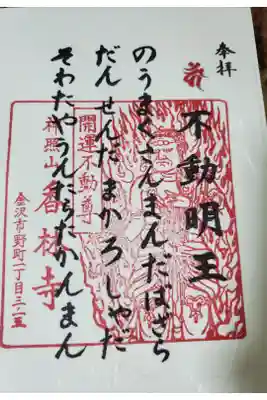 奉拝
不動明王
のうまくさんまんだばざら
だんせんだまかろしゃだ
そわたやうんだらだかんまん
開運不動尊
神照山
香林寺
金沢市野町一丁目